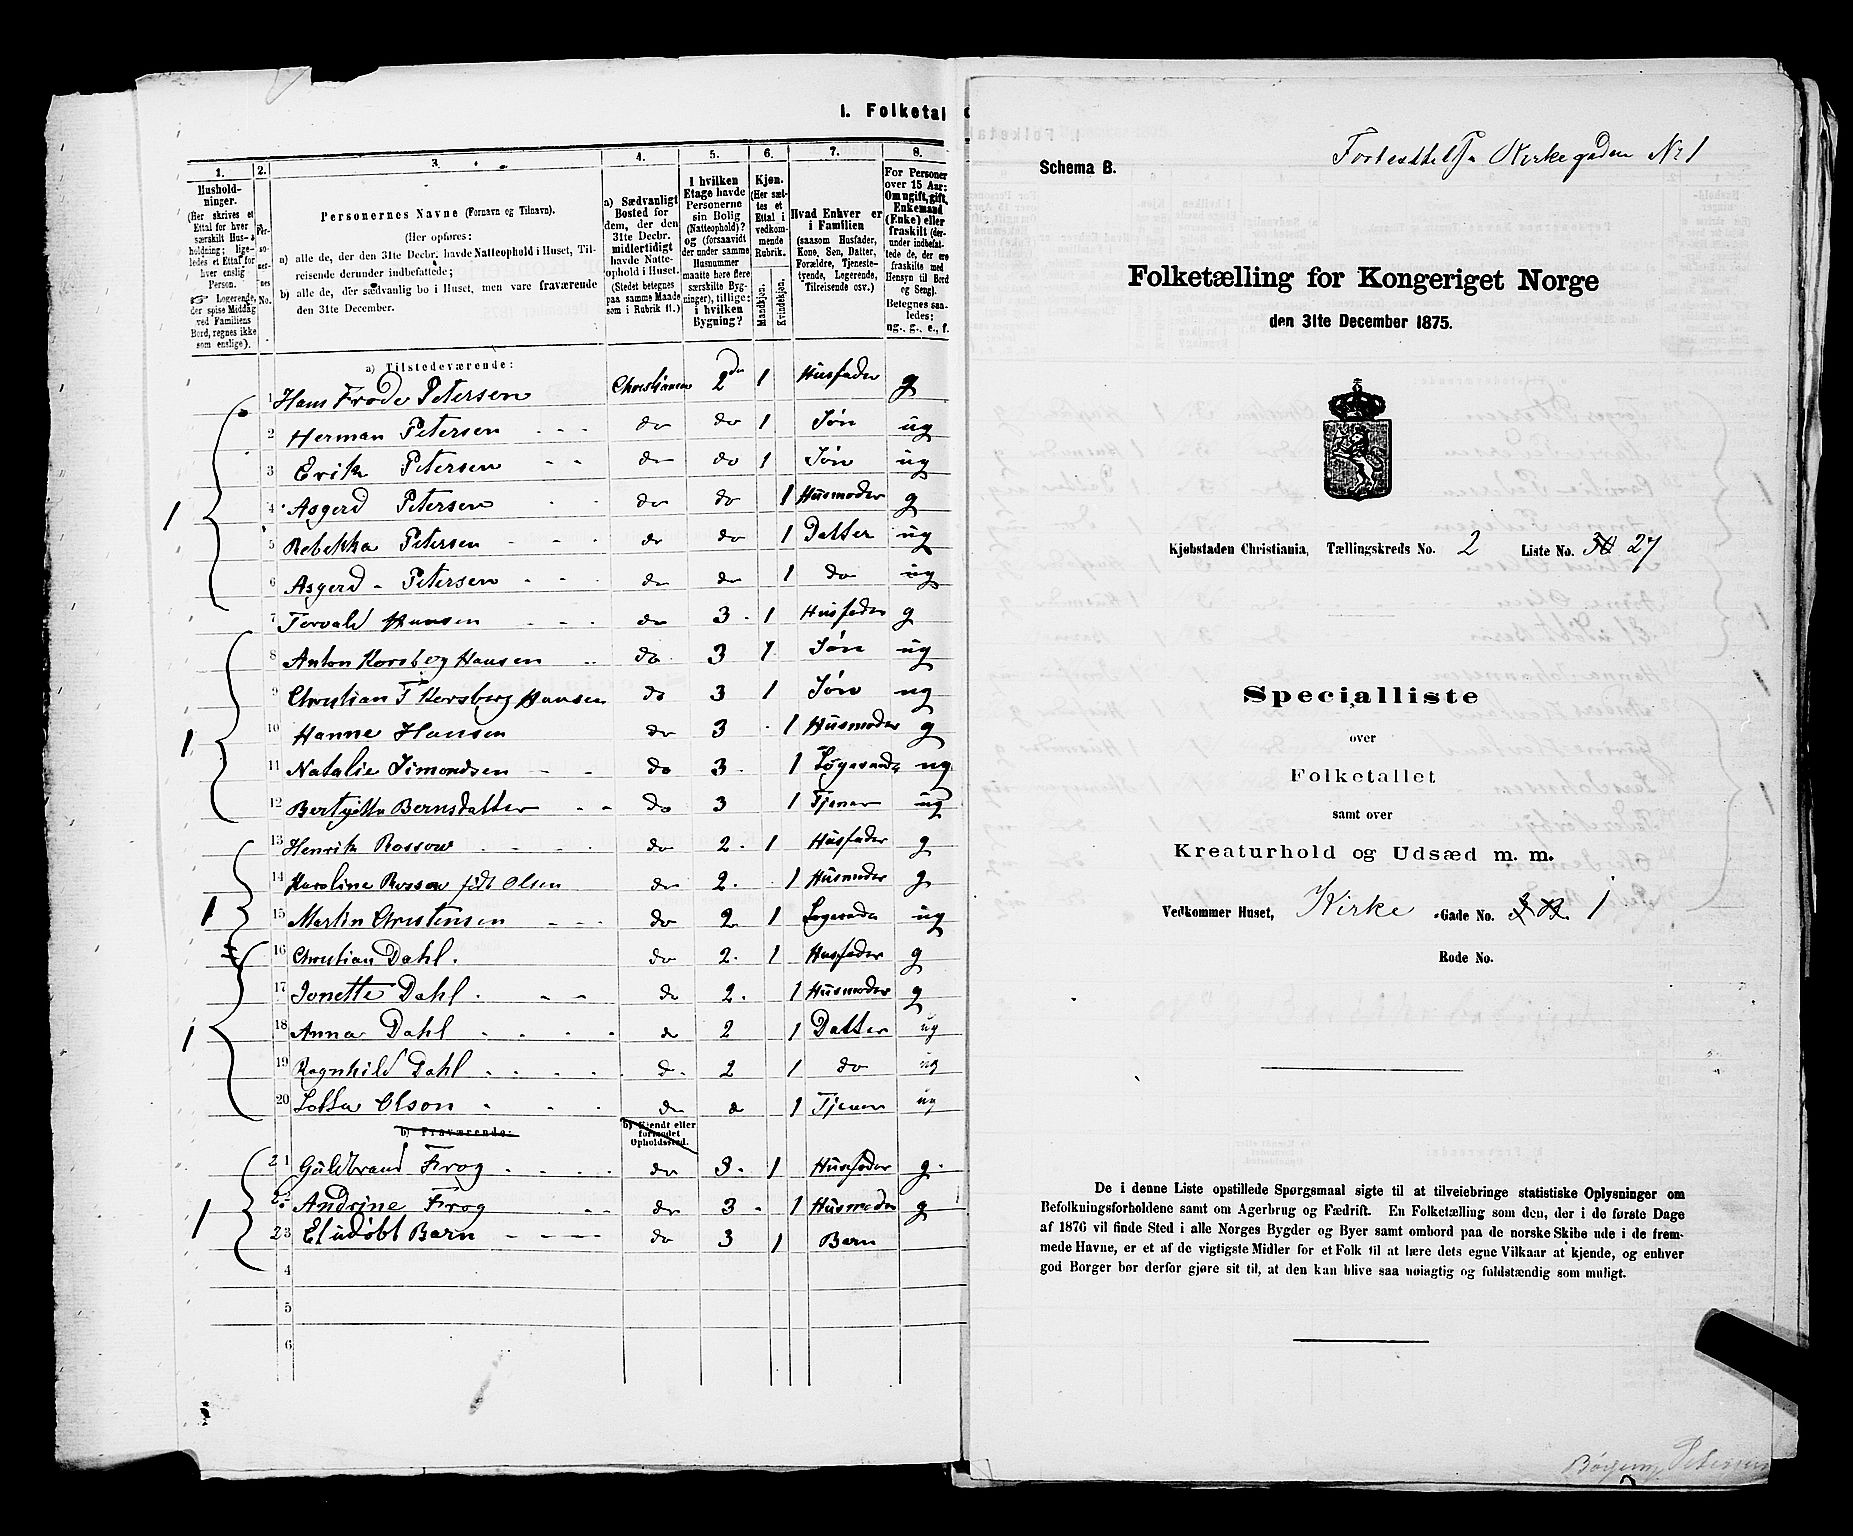 1. Folketal
1. 2. 3. 4. 5. 6. 7. 8.
Hushold-
ninger.
(Her skrives et
Ettal for hver
særskilt Hus-
holdning; lige-
ledes et Ettal for
hver enslig
Person.
Logerende,
der spise Middag
ved Familiens
Bord, regnes ikke
som enslige).
Per-
so-
ner-
nes
No.
Personernes Navne (Fornavn og Tilnavn).
(Her opføres:
a) alle de, der den 31te Decbr. havde Natteophold i Huset, Til-
reisende derunder indbefattede;
b) alle de, der sædvanlig bo i Huset, men vare fraværende
den 31te December.
a) Sædvanligt
Bosted for
dem, der den
31te Decbr.
midlertidigt
havde Natte-
ophold i Huset.
(Stedet betegnes
paa samme Maade
som i Rubrik 11.)
I hvilken
Etage havde
Personerne
sin Bolig
(Natteophold)?
og (forsaavidt
der under samme
Husnummer
maatte høre flere
særskilte Byg-
ninger), tillige:
i hvilken
Bygning?
Kjøn.
(Her sæt-
tes et
Ettal i
vedkom-
mende
Rubrik.
Mandkjøn.
Kvindekjøn.
Hvad Enhver er
i Familien
(saasom Husfader,
Kone, Søn, Datter,
Forældre, Tjeneste-
tyende, Logerende,
Tilreisende osv.)
For Personer
over 15 Aar:
Om ugift, gift,
Enkemand
(Enke) eller
fraskilt (der-
under indbefat-
tede de, der ere
fraskilte med
Hensyn til Bord
og Seng).
Betegnes saa-
ledes:
ug., g., e., f.
a) Tilstedeværende:
1 Hans Frode Petersen Christiania 2den 1 Husfader g
2 Herman Petersen do do 1 Søn ug
3 Erik Petersen do do 1 Søn ug
1 4 Asgerd Petersen do do 1 Husmoder g
5 Rebekka Petersen do do 1 Datter ug
6 Asgerd Petersen do do 1 do ug
7 Torvald Hansen do 3 1 Husfader g
8 Anton Korsberg Hansen do 3 1 Søn ug
9 Christian F Korsberg Hansen do 3 1 Søn ug
1 10 Hanne Hansen do 3 1 Husmoder g
11 Natalie Simondsen do 3 1 ug
12 Bernsdatter do 3 1 Tjener ug
13 Henrik Rossow do 2 1 Husfader g
14 Karoline Rossow født Olsen do 2 1 Husmoder g
1 15 Martin Christensen do 2 1 ug
16 Christian Dahl. do 2 1 Husfader g
17 Jonette Dahl. do 2 1 Husmoder g
1 18 Anna Dahl do 2 1 Datter ug
19 Ragnhild Dahl do 2 1 do ug
20 Lotta Olson do 2 1 Tjener ug
b) Fraværende: b) Kjendt eller
formodet
Opholdssted.
21 Guldbrand Frog do 3 1 Husfader g
1 22 Andrine Frog do 3 1 Husmoder g
23 Et udøbt Barn do 3 1 Barn
4
5
6
Schema B.
Kirkegaden No 1
Folketælling for Kongeriget Norge
den 31te December 1875.
Kjøbstaden Christiania, Tællingskreds No. 2 Liste No. 30 27
Specialliste
over
Folketallet
samt over
Kreaturhold og Udsæd m. m.
Vedkommer Huset, Kirke -Gade No. 1
Rode No.
De i denne Liste opstillede Spørgsmaal sigte til at tilveiebringe statistiske Oplysninger om
Befolkningsforholdene samt om Agerbrug og Fædrift. En Folketælling som den, der i de første Dage
af 1876 vil finde Sted i alle Norges Bygder og Byer samt ombord paa de norske Skibe ude i de frem-
mede Havne, er et af de vigtigste Midler for et Folk til at lære dets egne Vilkaar at kjende, og enhver
god Borger bør derfor gjøre sit til, at den kan blive saa nøiagtig og fuldstændig som muligt.
Petersen